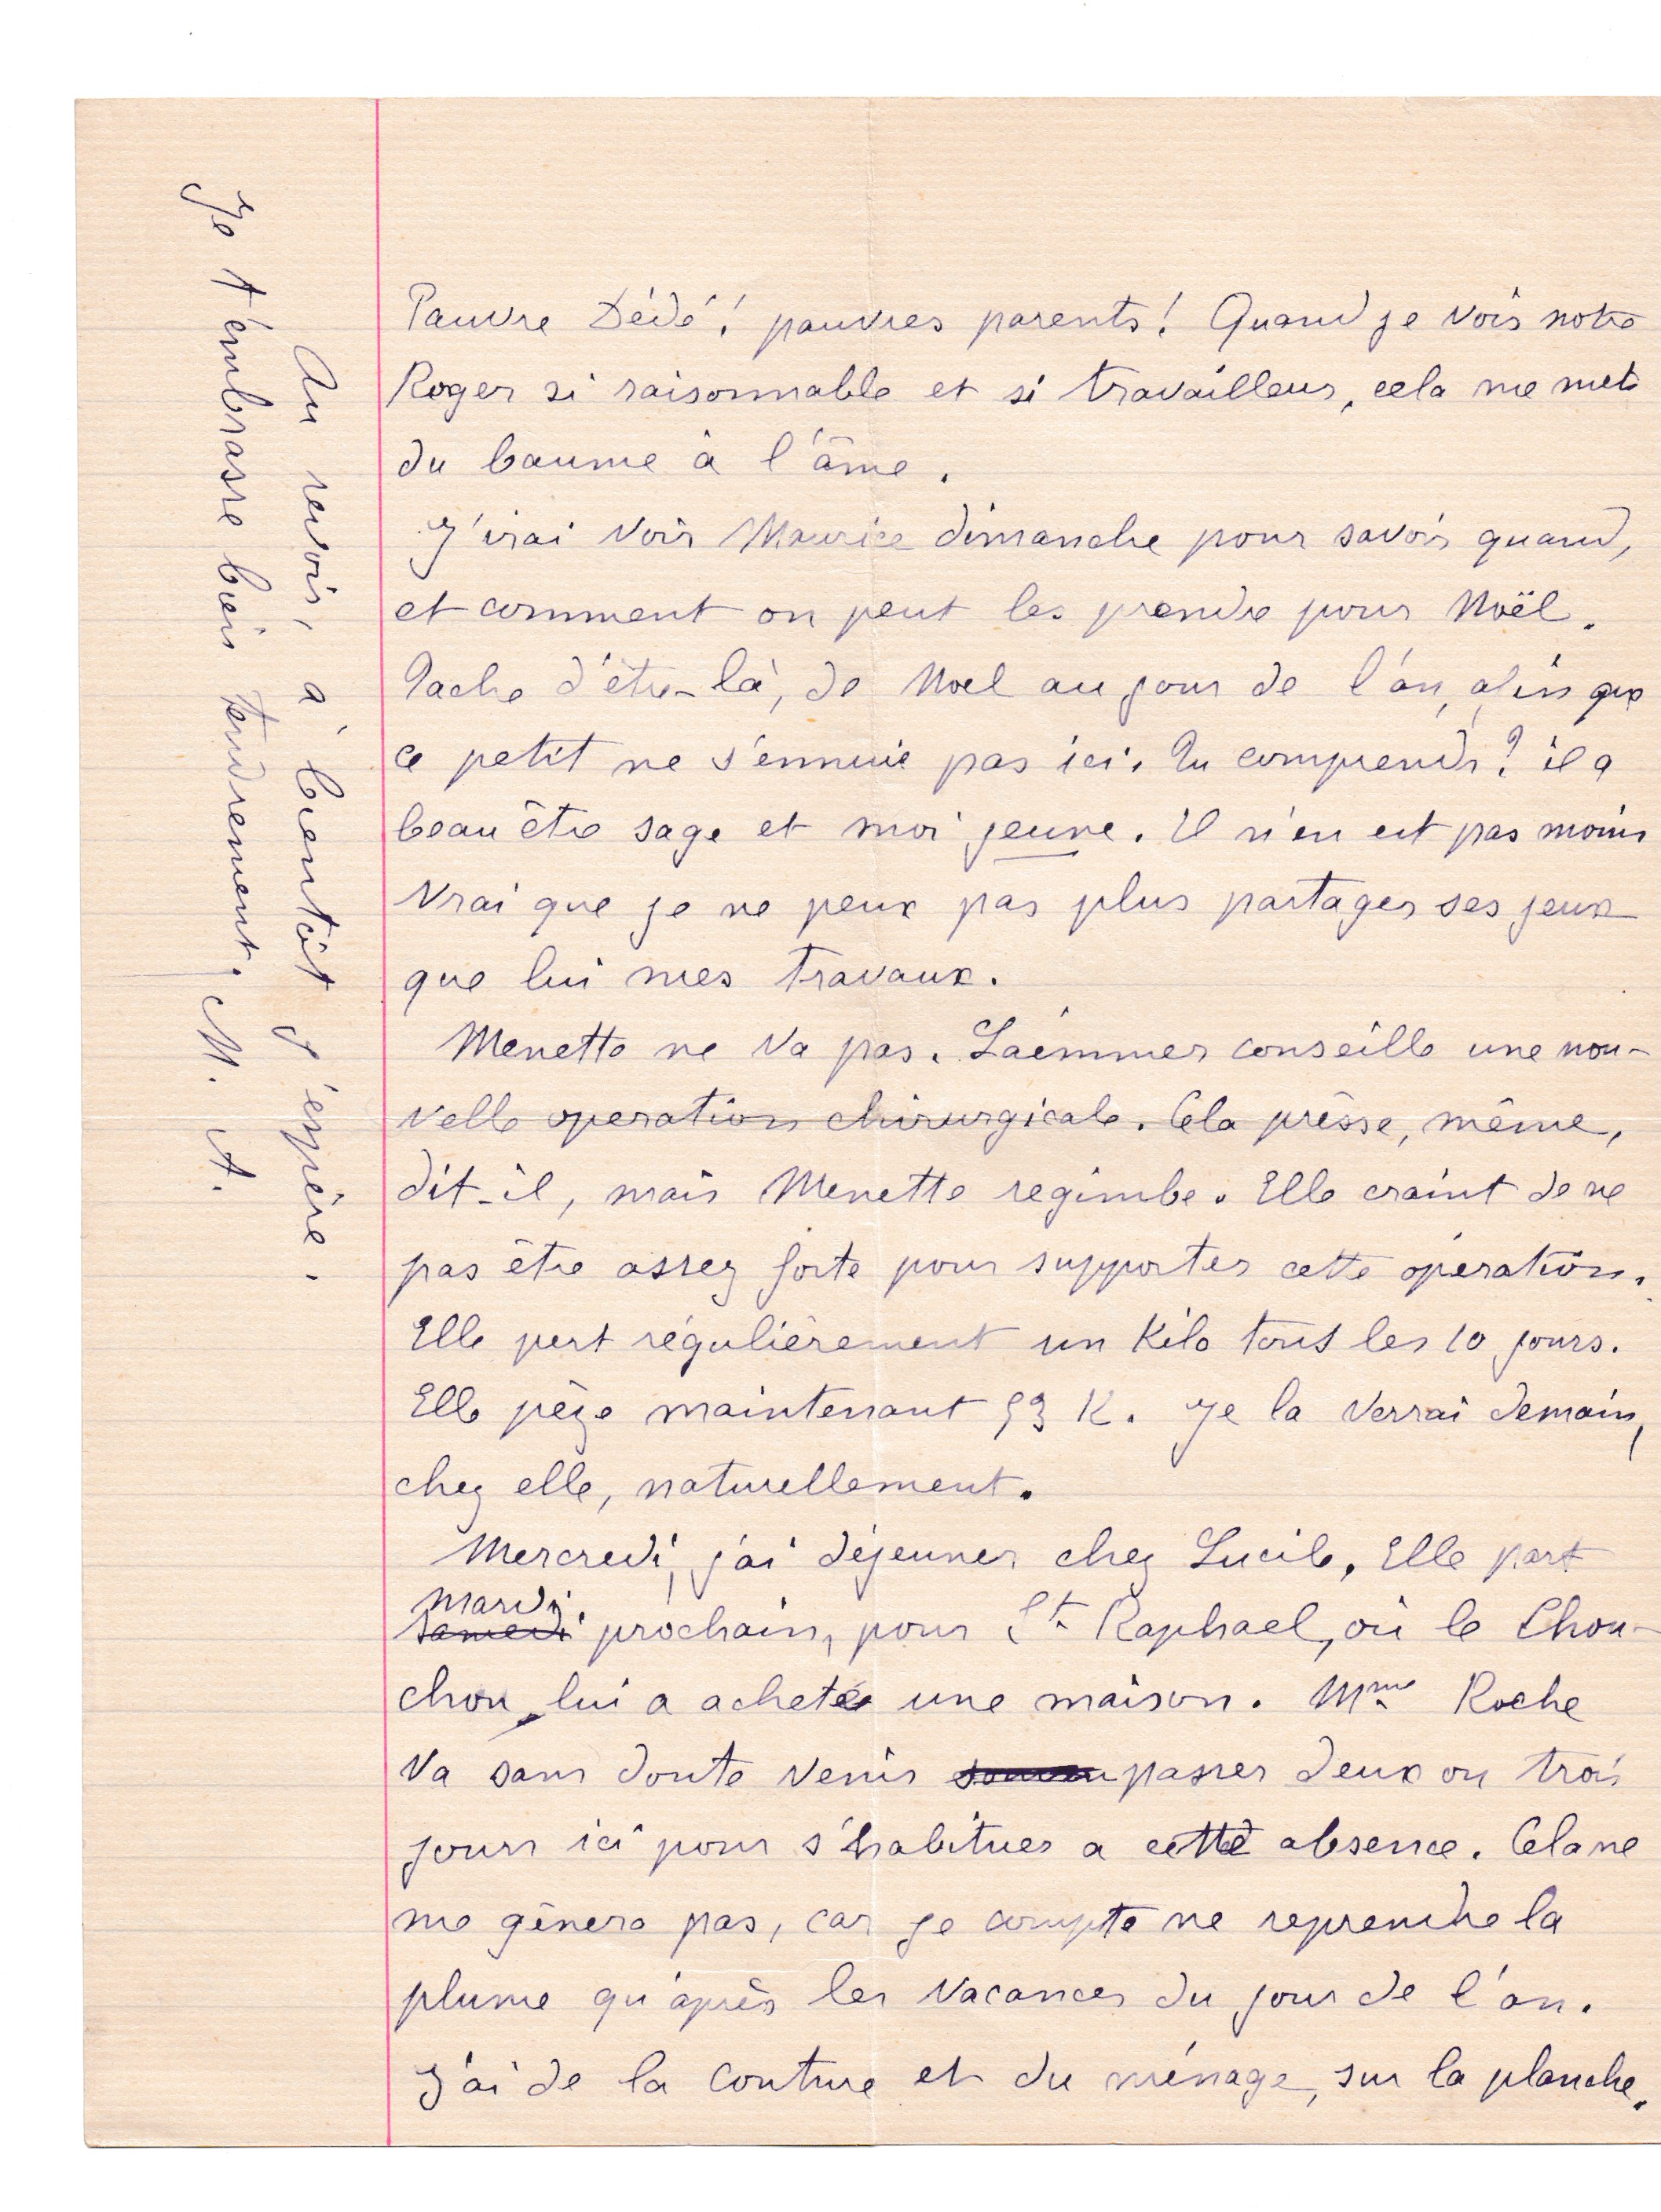 Pauvre Dédé! pauvres parents! Quand je vois notre
Roger si raisonnable et si travailleur, cela me met
du baume à l'âme.
J'irai voir Maurice dimanche pour savoir quand,
et comment on peut les prendre pour Noël.
Tache d'être-là, de Noel au jour de l'an, afin que
ce petit ne s'ennuie pas ici. Tu comprends? il a
beau être sage et moi jeune. Il n'en est pas moins
vrai que je ne peux pas plus partager ses jeux
que lui mes travaux.
Menette ne va pas. Laemmer conseille une nou-
velle operation chirurgicale. Cela presse, même,
dit-il, mais Menette regimbe. Elle craint de ne
pas être assez forte pour supporter cette operation.
Elle pert régulièrement un Kilo tous les 10 jours.
Elle pèze maintenant 53 K. Je la verrai demain,
chez elle, naturellement.
Mercredi, j'ai déjeuner chez Lucile, Elle part
mardi
samedi prochain, pour St Raphael, où le Chou-
chou lui a acheté une maison. Mme Roche
va sans doute venir passer deux ou trois
jours ici pour s'habituer a cette absence. Cela ne
me gênera pas, car je compte ne reprendre la
plume qu'après les vacances du jour de l'an.
J'ai de la couture et du ménage, sur la planche.
Au revoir, à bientôt j'espère.
Je t'embrasse bien tendrement. M. A.